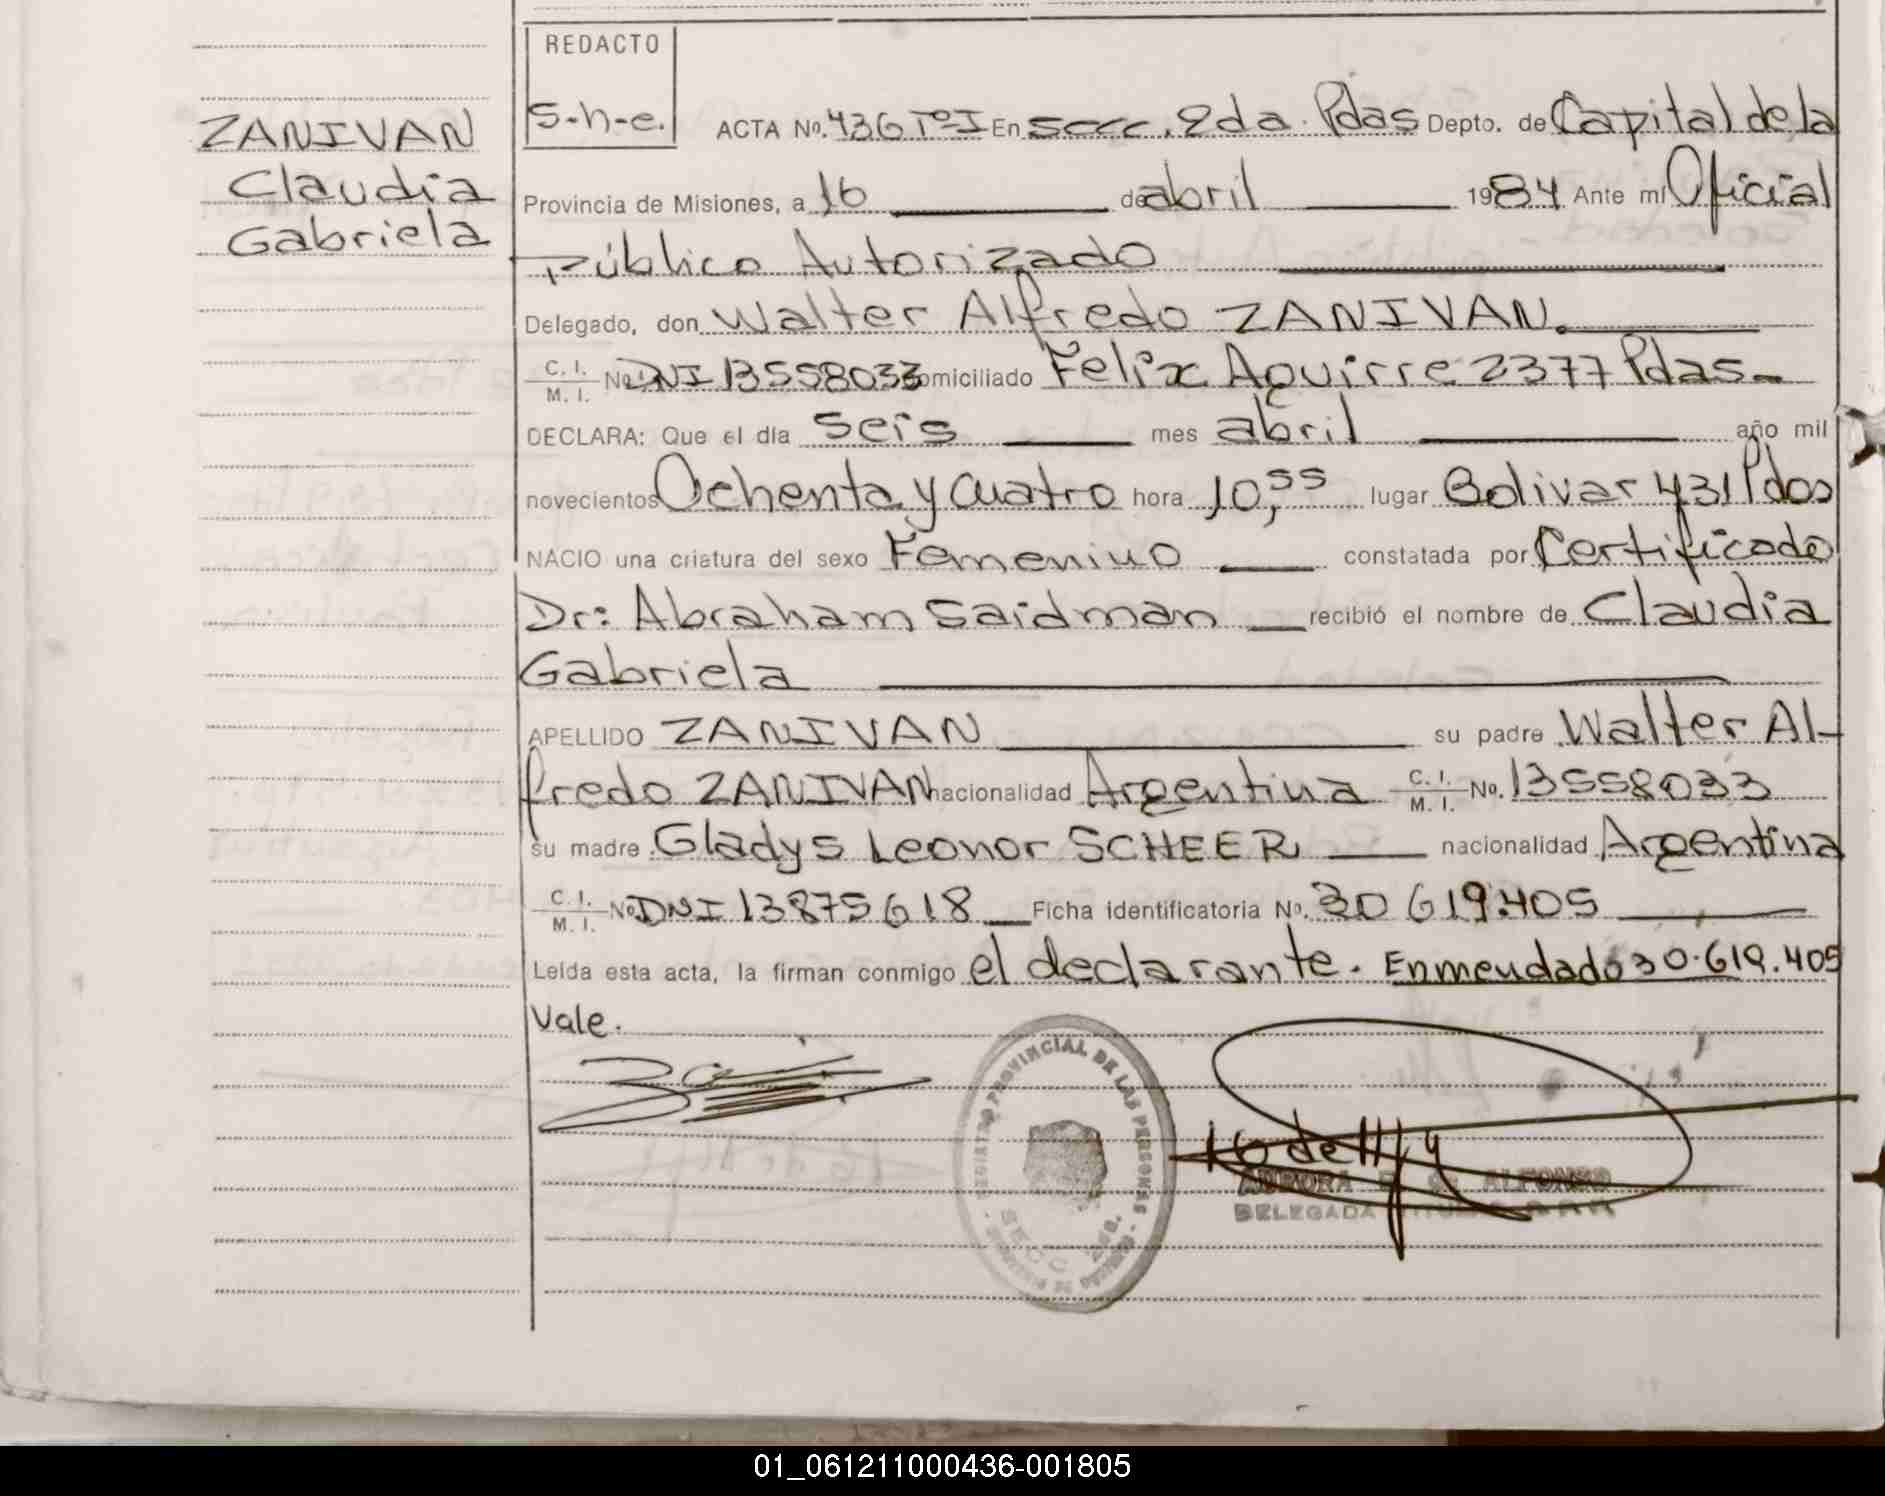 REDACTO
S-h-e.
ZANIVAN
Claudia
Gabriela
ACTA No. 436 Tº I En secc. 2da. Pdas Depto. de Capital de la
Provincia de Misiones, a 16 de abril 1984 Ante mí Oficial
Público Autorizado
Delegado, don Walter Alfredo ZANIVAN.
C. I. / M. I. No DNI 13558033 domiciliado Felix Aguirre 2377 Pdas-
DECLARA: Que el día seis mes abril año mil
novecientos Ochenta y cuatro hora 10,55 lugar Bolivar 431 Pdas
NACIO una criatura del sexo Femenino constatada por Certificado
Dr: Abraham Saidman recibió el nombre de Claudia
Gabriela
APELLIDO ZANIVAN su padre Walter Al-
fredo ZANIVAN nacionalidad Argentina C. I. / M. I. No. 13558033
su madre Gladys Leonor SCHEER nacionalidad Argentina
C. I. / M. I. No DNI 13875618 Ficha identificatoria No. 30 619.405
Leída esta acta, la firman conmigo el declarante. Enmendado 30.619.405
Vale.
REGISTRO PROVINCIAL DE LAS PERSONAS
SECC 2da.
ALFONSO
DELEGADA
01_061211000436-001805